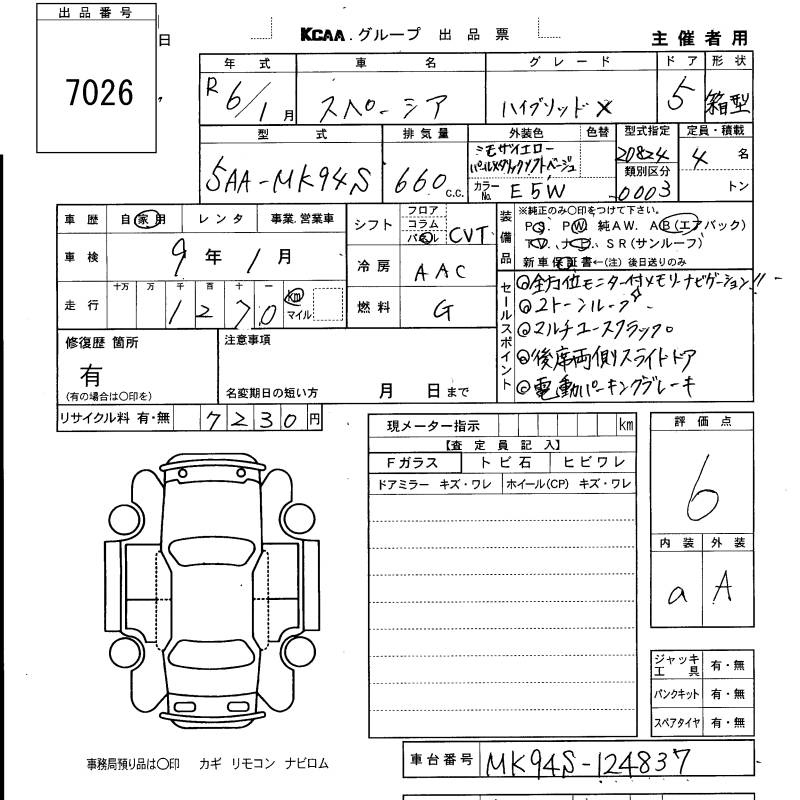 出品番号
7026
日
KCAA.グループ 出品票
主催者用
年式 車名 グレード ドア 形状
R6/1月 スペーシア ハイブリッドX 5 箱型
型式 排気量 外装色 色替 型式指定 定員・積載
5AA-MK94S 660 c.c. ミモザイエロー 20824 4名
パールメタリックソフトベージュ 類別区分
カラーNo. E5W 0003 トン
車歴 自家用 レンタ 事業.営業車
シフト フロア コラム パネル CVT
装備品 ※純正のみ〇印をつけて下さい。
PS. PW 純AW. AB(エアバック)
TV. ナビ. SR(サンルーフ)
新車保証書←(注) 後日送りのみ
車検 9年1月
冷房 AAC
走行 十万 万 千 百 十 一 km マイル
1270
燃料 G
セールスポイント
◎全方位モニター付メモリーナビゲーション!!
◎2トーンルーフ
◎マルチユースフラップ。
◎後席両側スライドドア
◎電動パーキングブレーキ
修復歴 箇所
有
(有の場合は〇印を)
注意事項
名変期日の短い方 月 日まで
リサイクル料 有・無 7230円
現メーター指示 km
【査定員記入】
Fガラス トビ石 ヒビワレ
ドアミラー キズ・ワレ ホイール(CP) キズ・ワレ
評価点
6
内装 外装
a A
ジャッキ工具 有・無
パンクキット 有・無
スペアタイヤ 有・無
事務局預り品は〇印 カギ リモコン ナビロム
車台番号 MK94S-124837